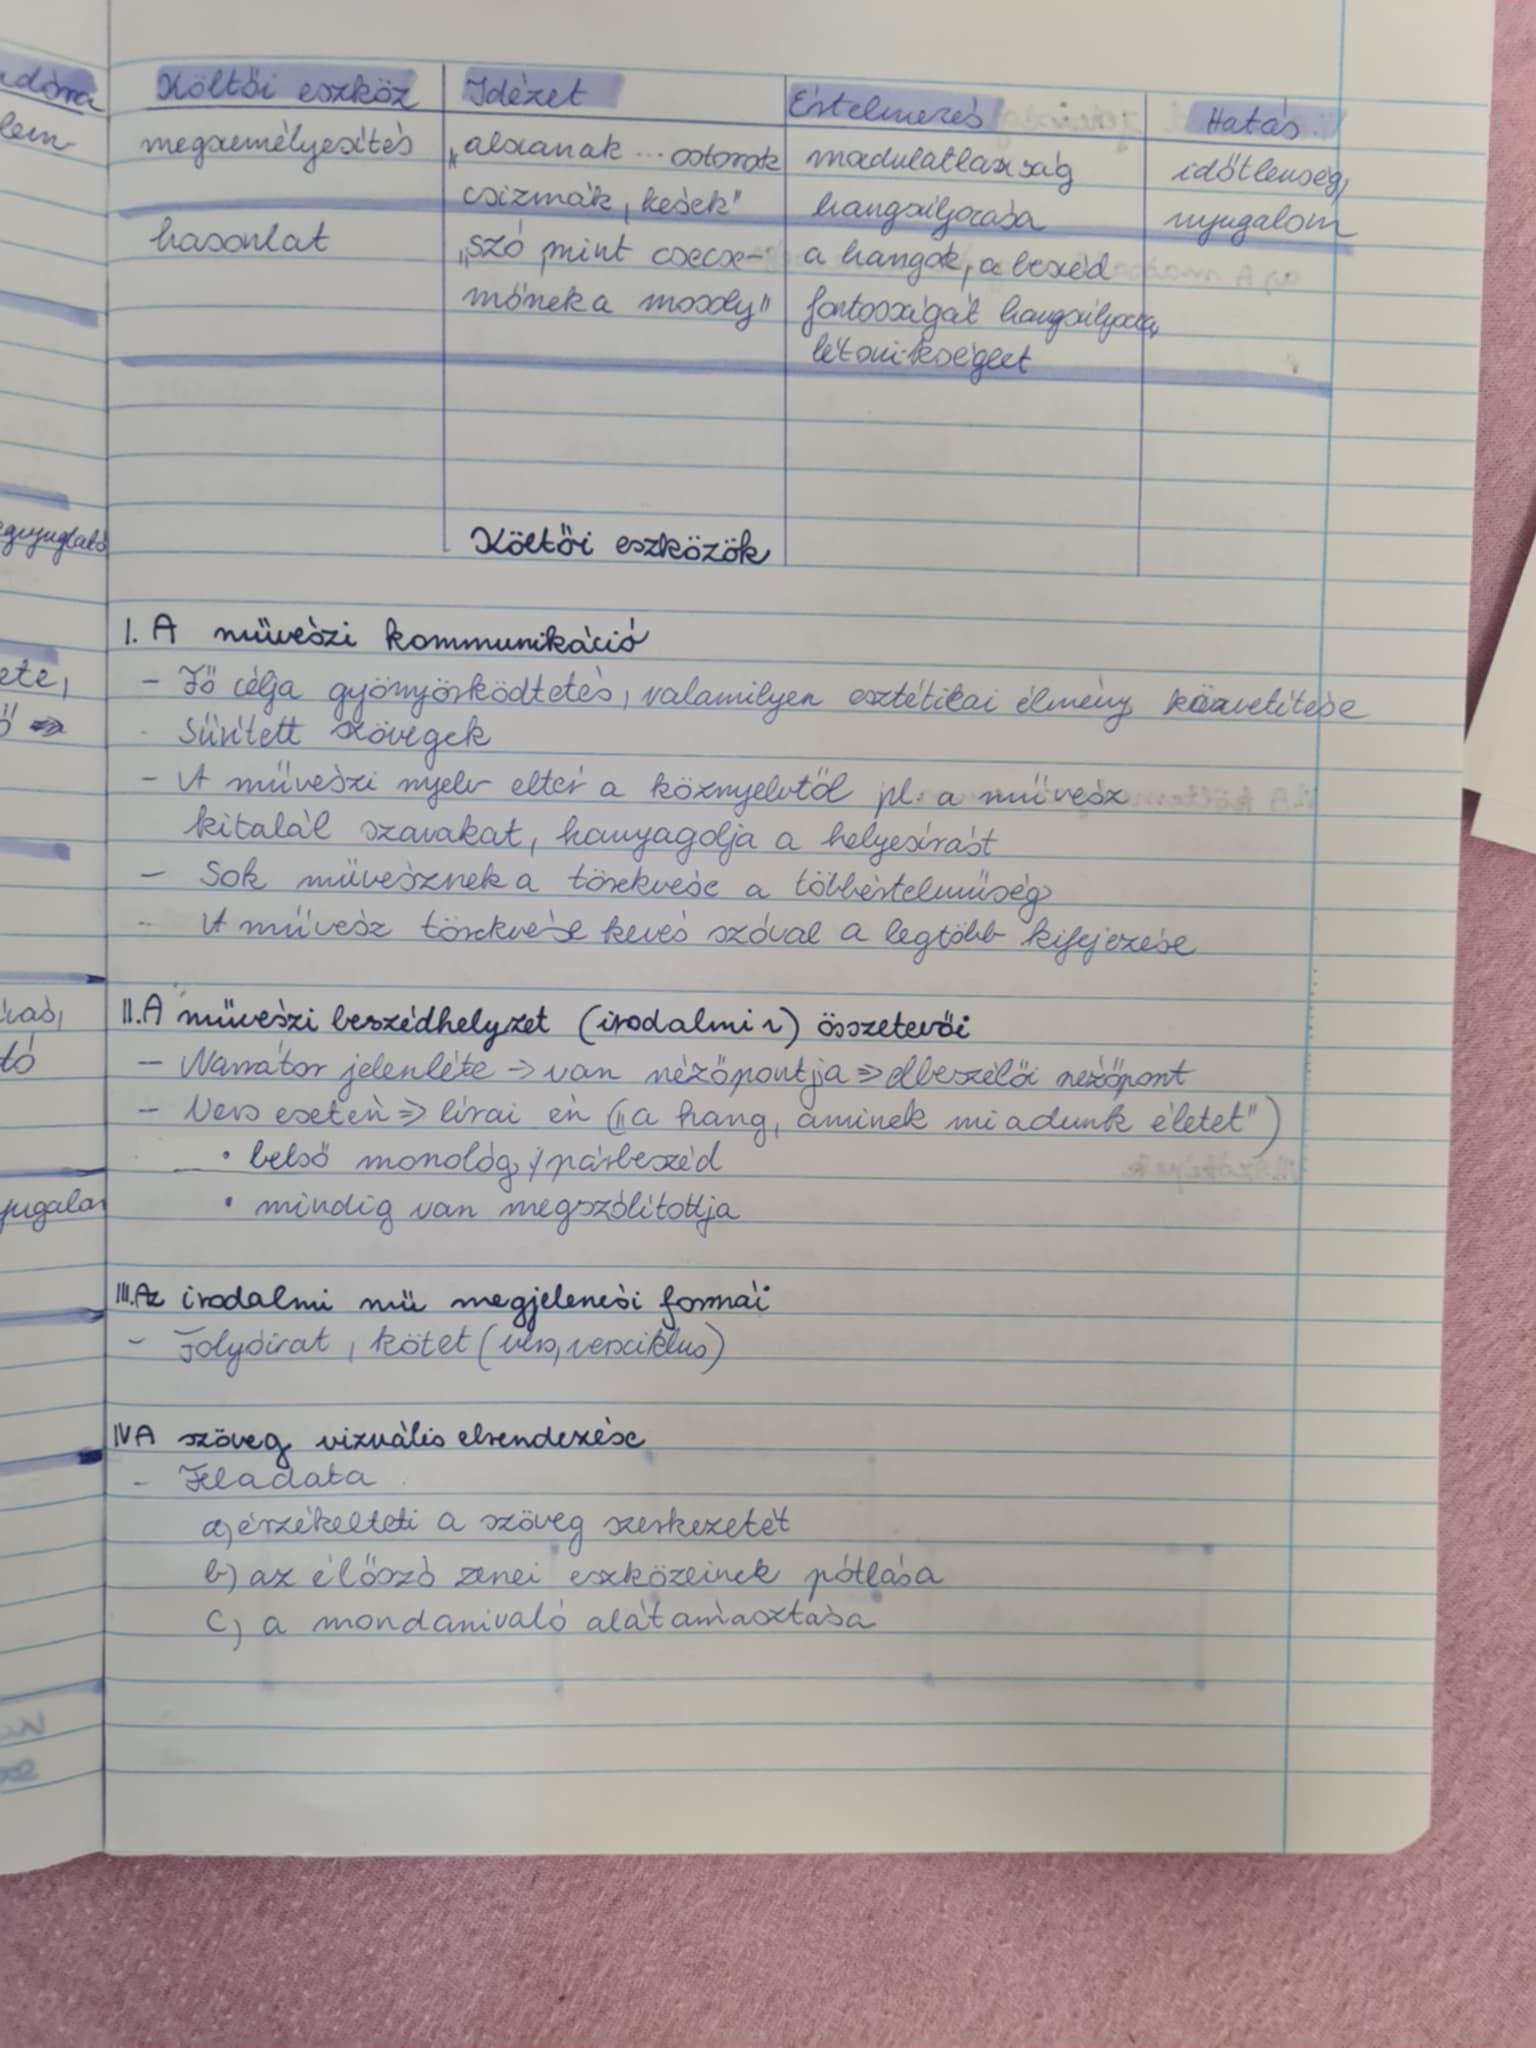 Költői eszköz Idézet Értelmezés Hatás
megszemélyesítés „alszanak ... ostorok mozdulatlanság időtlenség,
csizmák, kések" hangsúlyozása nyugalom
hasonlat „szó mint csecse- a hangok, a beszéd
mőnek a mosoly" fontosságát hangsúlyozza,
létszükséglet
Költői eszközök
I. A művészi kommunikáció
- Fő célja gyönyörködtetés, valamilyen esztétikai élmény közvetítése
- Sűrített szövegek
- A művészi nyelv eltér a köznyelvtől pl. a művész
kitalál szavakat, hanyagolja a helyesírást
- Sok művésznek a törekvése a többértelműség
- A művész törekvése kevés szóval a legtöbb kifejezése
II. A művészi beszédhelyzet (irodalmi ~) összetevői
- Narrátor jelenléte → van nézőpontja ⇒ elbeszélői nézőpont
- Vers esetén ⇒ lírai én („a hang, aminek mi adunk életet")
• belső monológ / párbeszéd
• mindig van megszólítottja
III. Az irodalmi mű megjelenési formái
- Folyóirat, kötet (vers, versciklus)
IV A szöveg vizuális elrendezése
- Feladata
a) érzékelteti a szöveg szerkezetét
b) az élőszó zenei eszközeinek pótlása
c) a mondanivaló alátámasztása